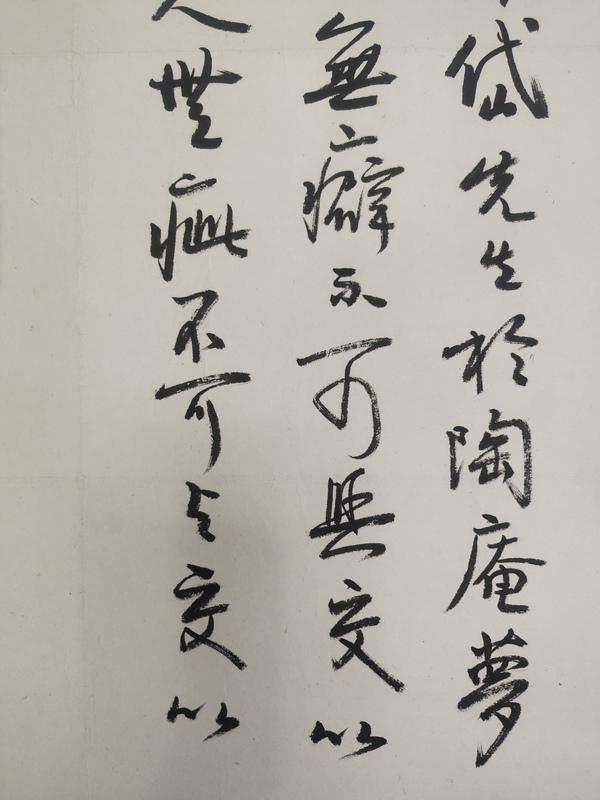 岱先生於陶庵夢
無癖不可與交以
人無疵不可与交以